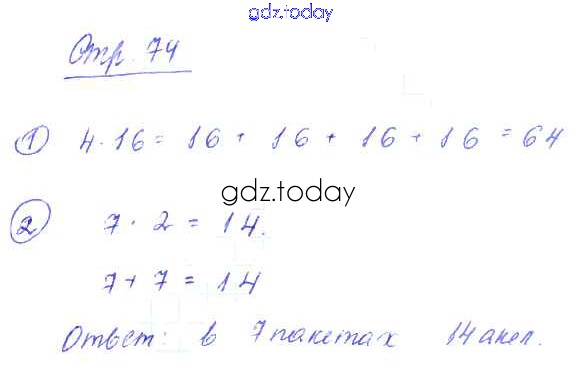 gdz.today
Стр. 74
1 4·16= 16 + 16 + 16 + 16 = 64
gdz.today
2 7·2 = 14.
7+7 = 14
Ответ: в 7 пакетах 14 апел.